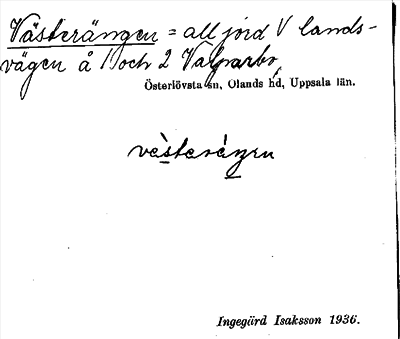 Västerängen = all jord V lands-
vägen å 1 och 2 Valparbo,
Österlövsta sn, Olands hd, Uppsala län.
vèsteréŋen
Ingegärd Isaksson 1936.